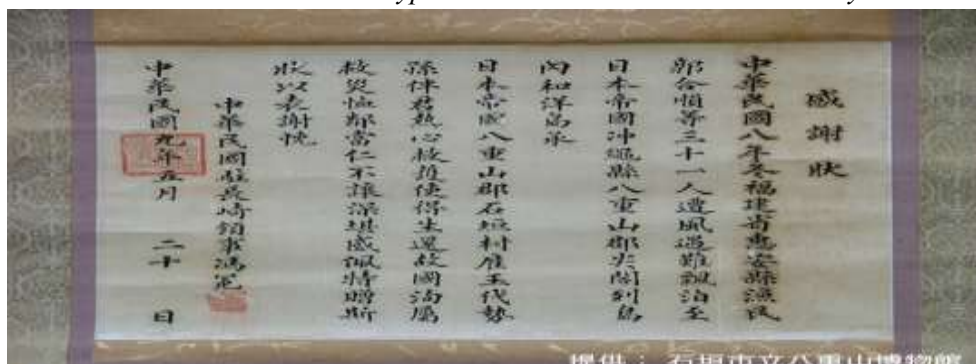 感謝狀
中華民國八年冬福建省惠安縣漁民
郭合順等三十一人遭風遇難飄泊至
日本帝國沖繩縣八重山郡尖閣列島
內和洋島承
日本帝國八重山郡石垣村雇玉代勢
孫伴君熱心救護使得生還故國洵屬
救災恤鄰當仁不讓深堪感佩特贈斯
狀以表謝忱
中華民國駐長崎領事馮冕
中華民國九年五月 二十 日
提供： 石垣市立八重山博物館